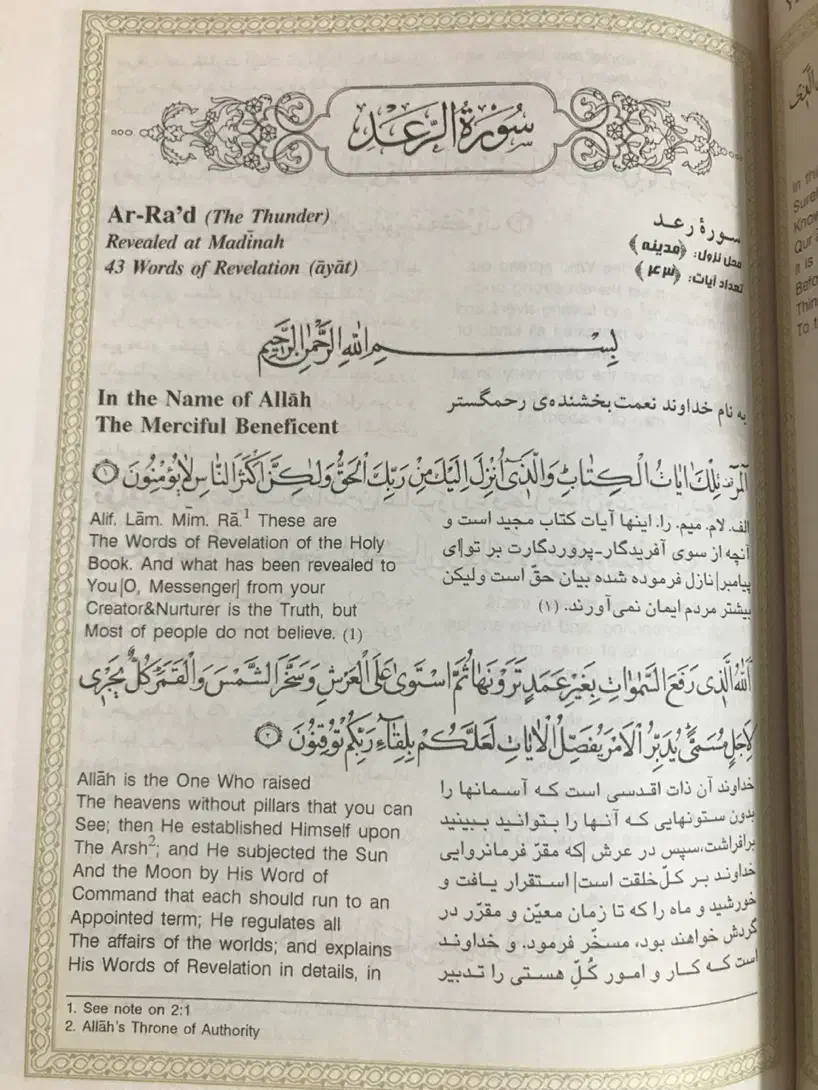 سُورَةُ الرَّعْدِ
Ar-Ra'd (The Thunder)
Revealed at Madīnah
43 Words of Revelation (āyāt)
سورهٔ رعد
محل نزول: ﴿مدینه﴾
تعداد آیات: ﴿۴۳﴾
بِسْمِ اللهِ الرَّحْمٰنِ الرَّحِيمِ
In the Name of Allāh
The Merciful Beneficent
به نام خداوند نعمت بخشنده‌ی رحمگستر
الٓمٓرٰ تِلْكَ اٰيَاتُ الْكِتَابِ وَالَّذٓى اُنْزِلَ اِلَيْكَ مِنْ رَبِّكَ الْحَقُّ وَلٰكِنَّ اَكْثَرَ النَّاسِ لَايُؤْمِنُونَ ۱
Alif. Lām. Mīm. Rā.1 These are
The Words of Revelation of the Holy
Book. And what has been revealed to
You|O, Messenger| from your
Creator&Nurturer is the Truth, but
Most of people do not believe. (1)
الف. لام. میم. را. اینها آیات کتاب مجید است و
آنچه از سوی آفریدگار-پروردگارت بر تو|ای
پیامبر| نازل فرموده شده بیان حقّ است ولیکن
بیشتر مردم ایمان نمی‌آورند. (۱)
اَللهُ الَّذِى رَفَعَ السَّمٰوَاتِ بِغَيْرِ عَمَدٍ تَرَوْنَهَا ثُمَّ اسْتَوٰى عَلَى الْعَرْشِ وَسَخَّرَ الشَّمْسَ وَالْقَمَرَ كُلٌّ يَجْرِى
لِاَجَلٍ مُسَمًّى يُدَبِّرُ الْاَمْرَ يُفَصِّلُ الْاٰيَاتِ لَعَلَّكُمْ بِلِقَآءِ رَبِّكُمْ تُوقِنُونَ ۲
Allāh is the One Who raised
The heavens without pillars that you can
See; then He established Himself upon
The Arsh2; and He subjected the Sun
And the Moon by His Word of
Command that each should run to an
Appointed term; He regulates all
The affairs of the worlds; and explains
His Words of Revelation in details, in
خداوند آن ذات اقدسی است که آسمانها را
بدون ستونهایی که آنها را بتوانید ببینید
برافراشت، سپس در عرش |که مقرّ فرمانروایی
خداوند بر کلّ خلقت است| استقرار یافت و
خورشید و ماه را که تا زمان معیّن و مقرّر در
گردش خواهند بود، مسخّر فرمود. و خداوند
است که کار و امور کُلِّ هستی را تدبیر
1. See note on 2:1
2. Allāh's Throne of Authority
In the
Know
Qur
It is
To t